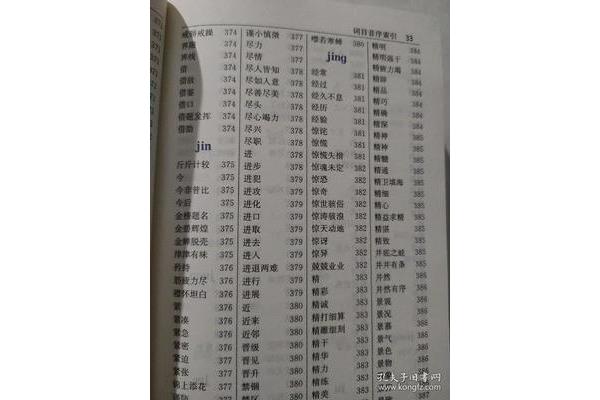 词目音序索引 33
戒骄戒躁 374
界线 374
借 374
借故 374
借鉴 374
借口 374
借题发挥 374
借助 374
jin
斤斤计较 375
今 375
今非昔比 375
今后 375
金榜题名 375
金碧辉煌 375
金蝉脱壳 375
津津有味 375
矜持 376
筋疲力尽 376
襟怀坦白 376
紧 376
紧凑 376
紧急 376
紧密 376
紧迫 376
紧张 376
锦上添花 377
谨防 377
谨小慎微 377
尽力 377
尽情 377
尽人皆知 378
尽如人意 378
尽善尽美 378
尽头 378
尽心竭力 378
尽兴 378
尽职 378
进 378
进步 378
进犯 379
进攻 379
进化 379
进口 379
进取 379
进去 379
进入 379
进退两难 379
进行 379
进展 379
近 380
近来 380
近邻 380
晋级 380
晋见 380
晋升 380
禁锢 380
禁区 380
噤若寒蝉 380
jing
经常 381
经过 381
经久不息 381
经历 381
经验 381
惊诧 381
惊慌 381
惊慌失措 381
惊魂未定 382
惊恐 382
惊奇 382
惊世骇俗 382
惊涛骇浪 382
惊天动地 382
惊讶 382
惊异 382
兢兢业业 382
精 383
精彩 383
精诚 383
精打细算 383
精雕细刻 383
精干 383
精华 383
精力 383
精练 383
精美 383
精明 384
精明强干 384
精疲力竭 384
精辟 384
精品 384
精巧 384
精确 384
精深 384
精神 385
精神 385
精髓 385
精通 385
精卫填海 385
精细 385
精心 385
精益求精 385
精湛 385
精致 385
井底之蛙 385
井井有条 385
井然 386
井然有序 386
景观 386
景况 386
景慕 386
景气 386
景色 386
景物 386
景象
孔夫子旧书网
www.kongfz.com